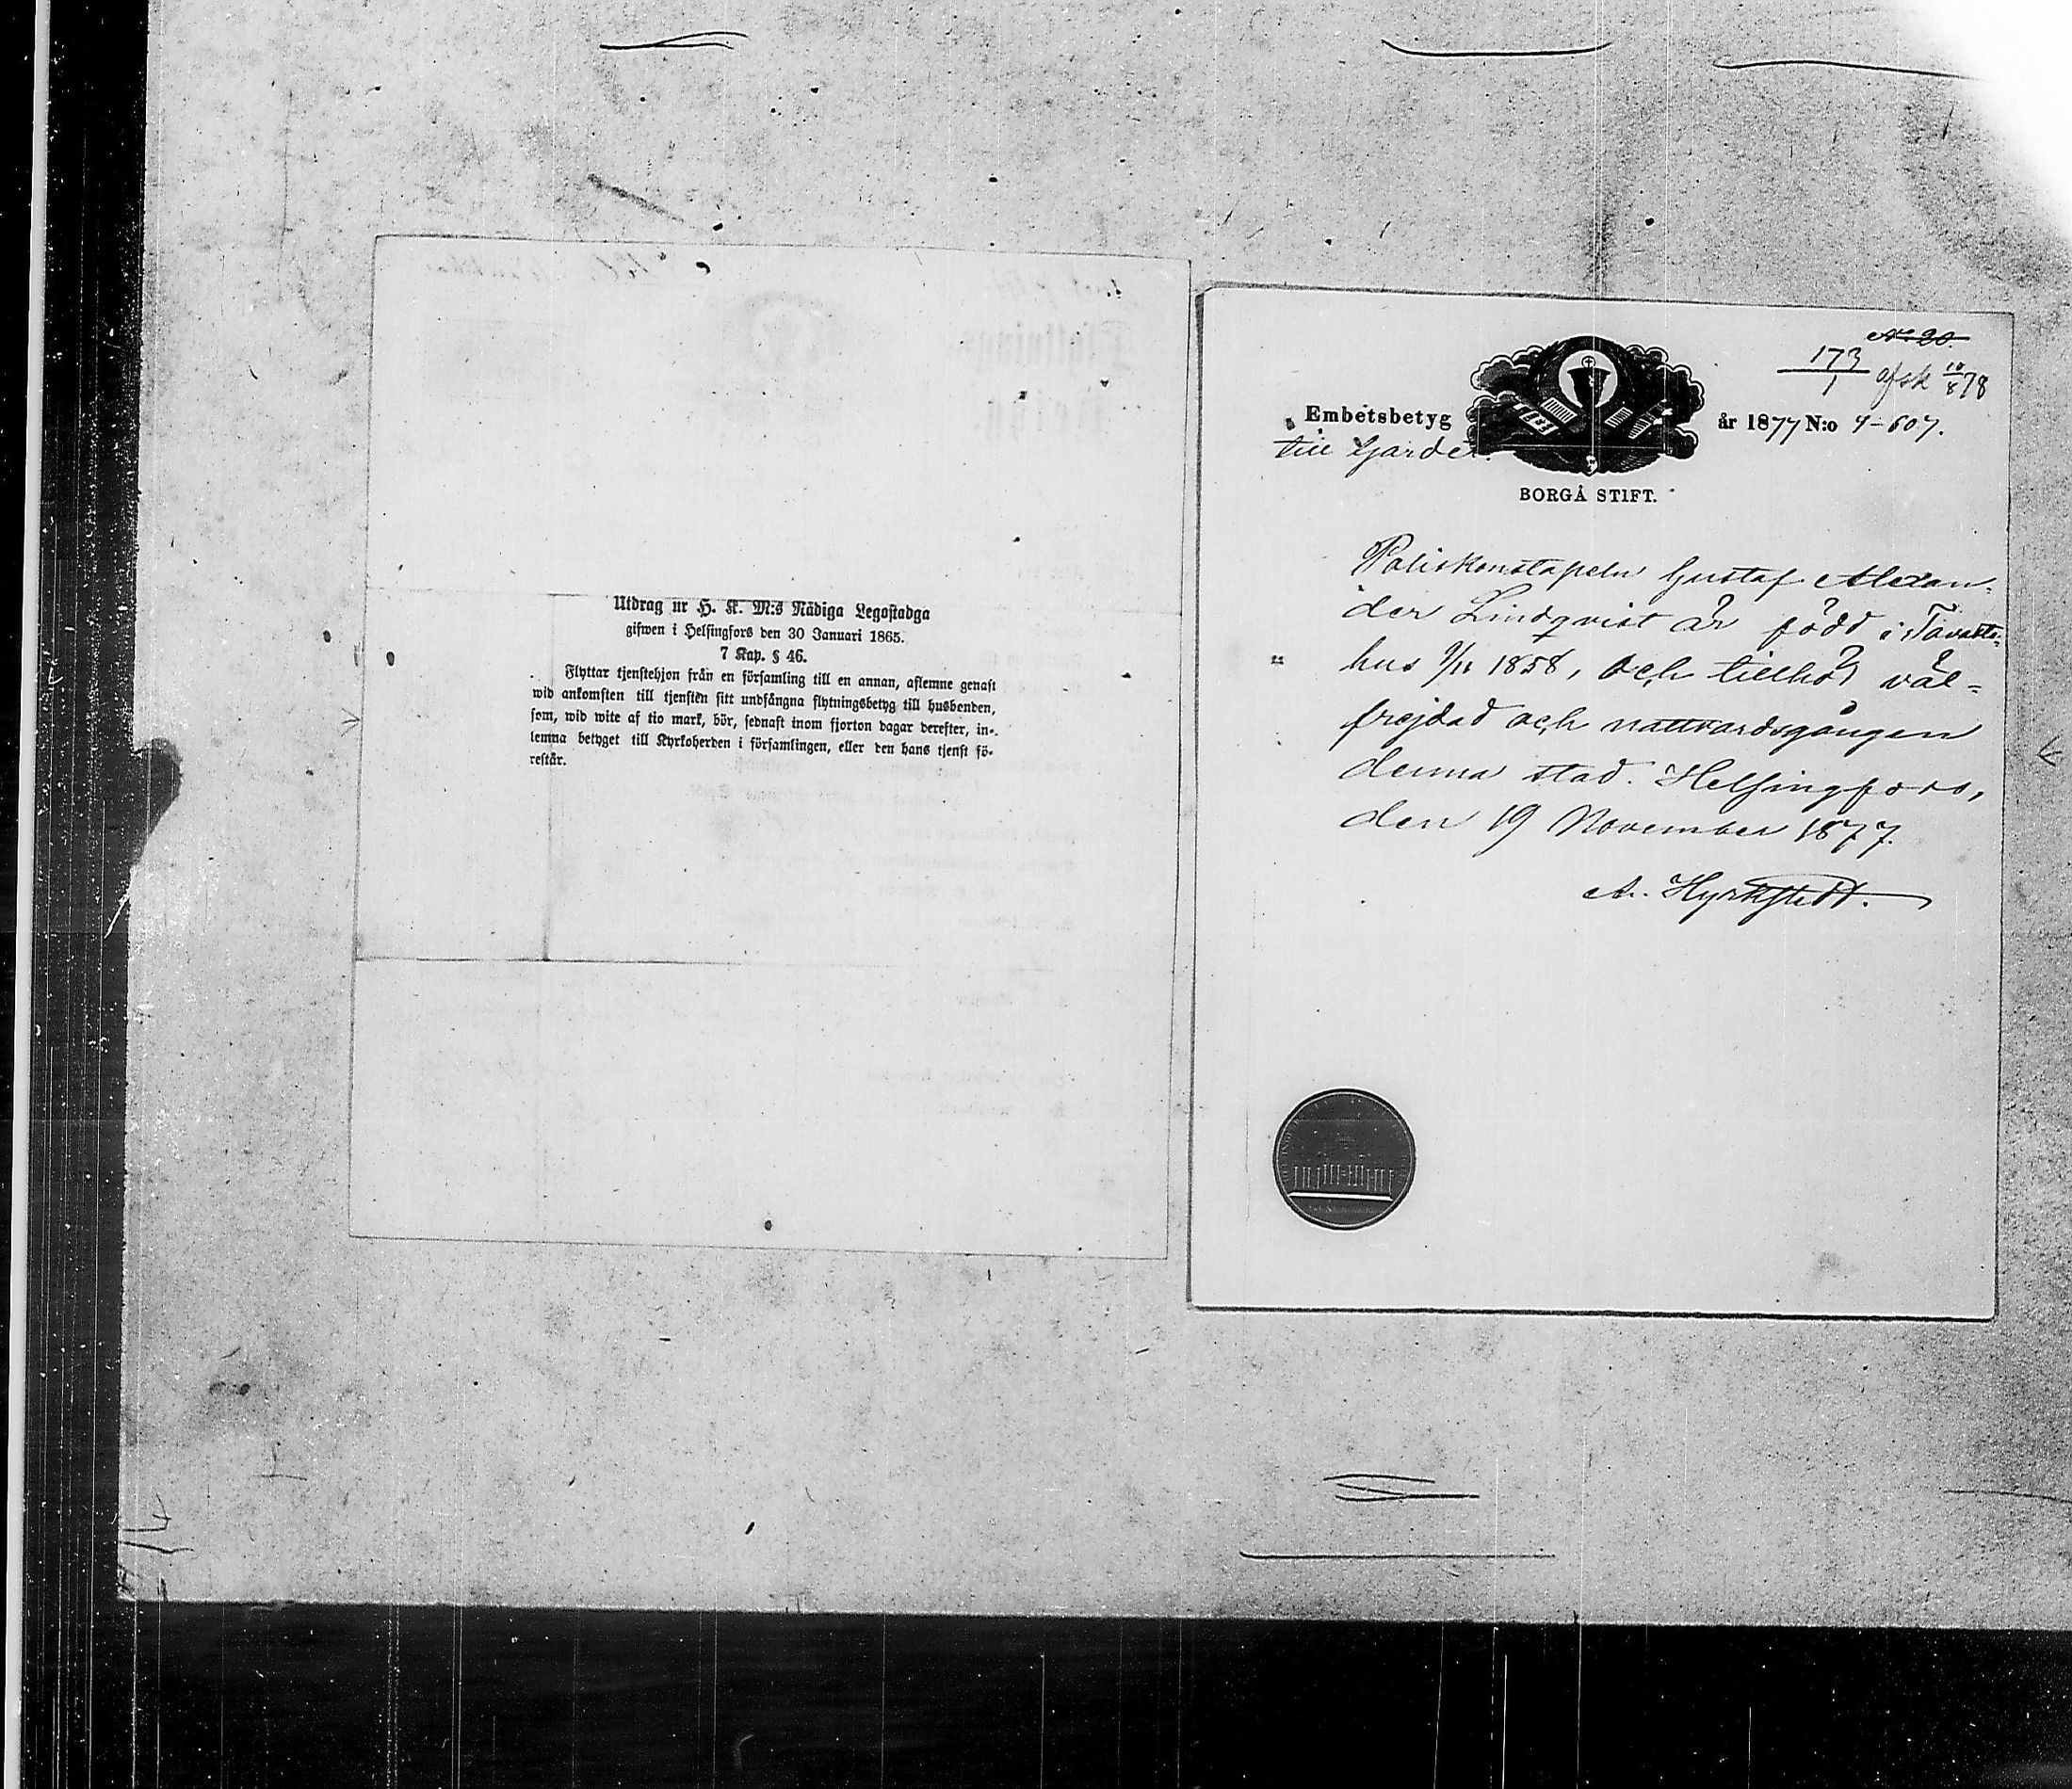 Utdrag ur H. K. M:s Nådiga Legostadga
gifwen i Helsingfors den 30 Januari 1865.
7 Kap. § 46.
Flyttar tjenstehjon från en församling till en annan, aflemne genast
wid ankomsten till tjensten sitt undfångna flytningsbetyg till husbonden,
som, wid wite af tio mark, bör, sednast inom fjorton dagar derefter, in-
lemna betyget till Kyrkoherden i församlingen, eller den hans tjenst fö-
restår.
No 20.
173/1 afsk 10/8 78
Embetsbetyg år 1877 N:o 4-607.
till Gardet.
BORGÅ STIFT.
Poliskonstapeln Gustaf Alexan-
der Lindqvist är född i Tavaste-
hus 9/11 1858, och tillhör väl-
frejdad och nattvardsgången
denna stad. Helsingfors,
den 19 November 1877.
A. Hyrkstedt.